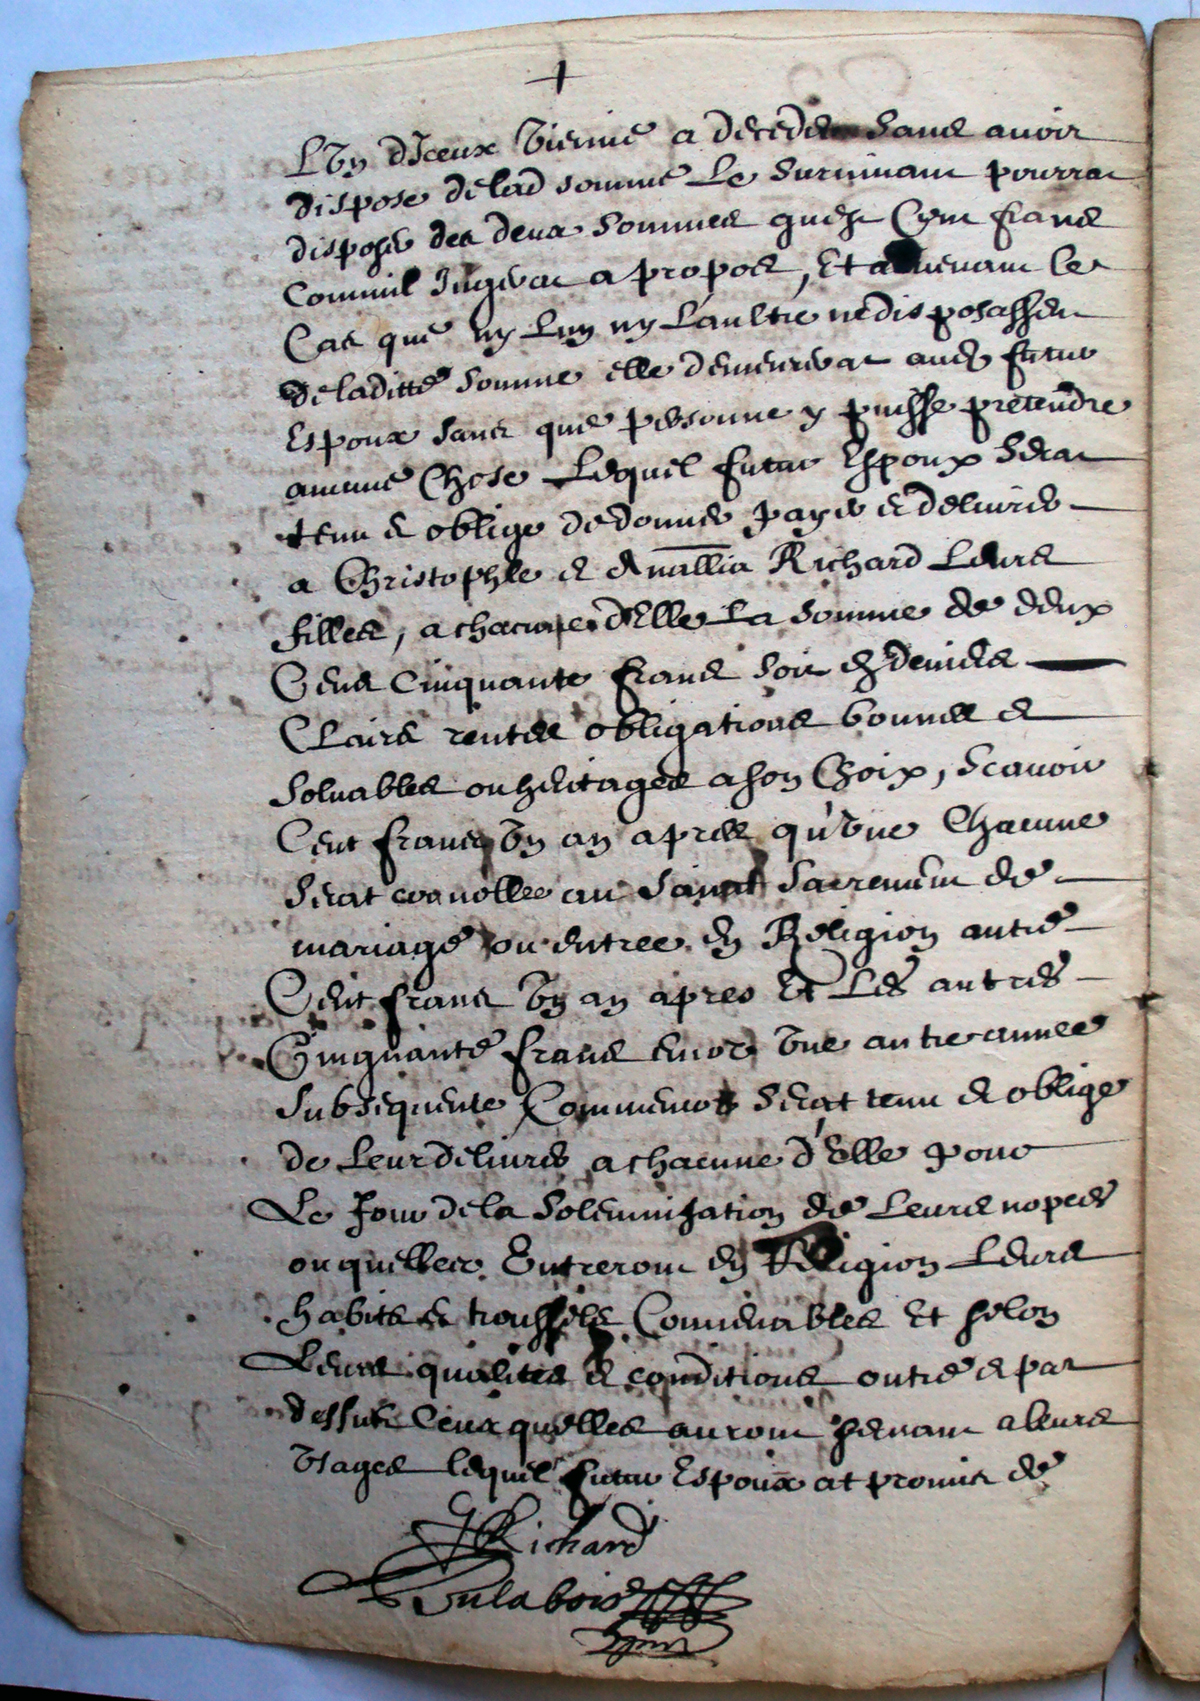 +
L'vn d'Iceux vienne a deceder sans avoir
dispose de lad somme Le survivant pourrat
disposer des deux sommes quest Cent francs
comm'il Jugerat a propos, Et advenant le
Cas que ny L'un ny L'aultre ne disposassent
de laditte somme elle demeurerat aud futur
Espoux sans que personne y puisse pretendre
aucune Chose Lequel futur Espoux serat
tenu et oblige de donner payer et delivrer
a Christophle et Richard Leurs
filles, a chacune d'Elle La somme de deux
Cens Cinquante francs soit en deniers
Clairs rentes obligations bonnes et
Solvables ou heritages a son Choix, Scavoir
Cent francs vn an apres qu'vne Chacune
serat convollee au Sainct Sacrement de
mariage ou entree en Religion autre
Cent francs vn an apres Et Les autres
Cinquante francs encor vne autre annee
subsequente Comme serat tenu et oblige
de Leur delivrer a chacune d'Elle pour
Le Jour de la solemnisation de Leurs nopces
ou quelles Entreront en Religion Leurs
habits et trousselz Convenables Et selon
Leurs qualites et conditions outre et par
dessus Ceux quelles auront servant a leurs
vsages lequel futur Espoux at promis de
G Richard